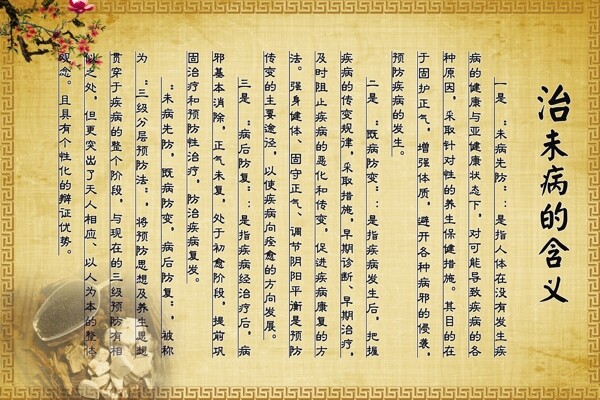 治未病的含义
一是：未病先防：：是指人体在没有发生疾
病的健康与亚健康状态下，对可能导致疾病的各
种原因，采取针对性的养生保健措施。其目的在
于固护正气，增强体质，避开各种病邪的侵袭，
预防疾病的发生。
二是：既病防变：：是指疾病发生后，把握
疾病的传变规律，采取措施，早期诊断、早期治疗，
及时阻止疾病的恶化和传变，促进疾病康复的方
法。强身健体、固守正气、调节阴阳平衡是预防
传变的主要途径，以使疾病向痊愈的方向发展。
三是：病后防复：：是指疾病经治疗后，病
邪基本消除，正气未复，处于初愈阶段，提前巩
固治疗和预防性治疗，防治疾病复发。
：未病先防，既病防变，病后防复：，被称
为：三级分层预防法：，将预防思想及养生思想
贯穿于疾病的整个阶段，与现在的三级预防有相
似之处，但更突出了天人相应、以人为本的整体
观念。且具有个性化的辩证优势。